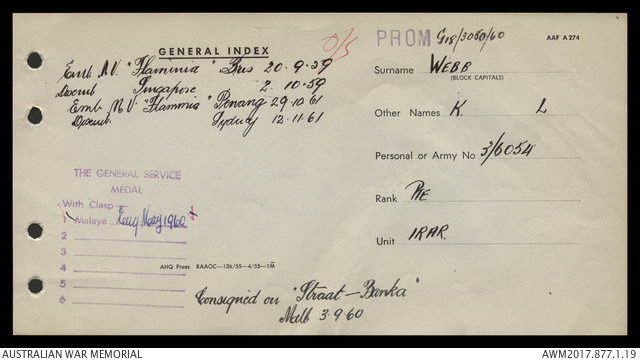 GENERAL INDEX
O/S
Emb M.V. "Flaminia" Bris 20-9-59
Disemb Singapore 2.10.59
Emb M.V. "Flaminia" Penang 29.10.61
Disemb. Sydney 12.11.61
THE GENERAL SERVICE
MEDAL
With Clasp
1 Malaya
2
3
4
5
6
AHQ Press RAAOC—136/55—4/55—1M
Consigned on "Straat—Banka"
Melb 3-9-60
PROM G18/3050/60
AAF A 274
Surname WEBB
(BLOCK CAPITALS)
Other Names K. L
Personal or Army No 3/6054
Rank PTE
Unit 1RAR.
AUSTRALIAN WAR MEMORIAL
AWM2017.877.1.19